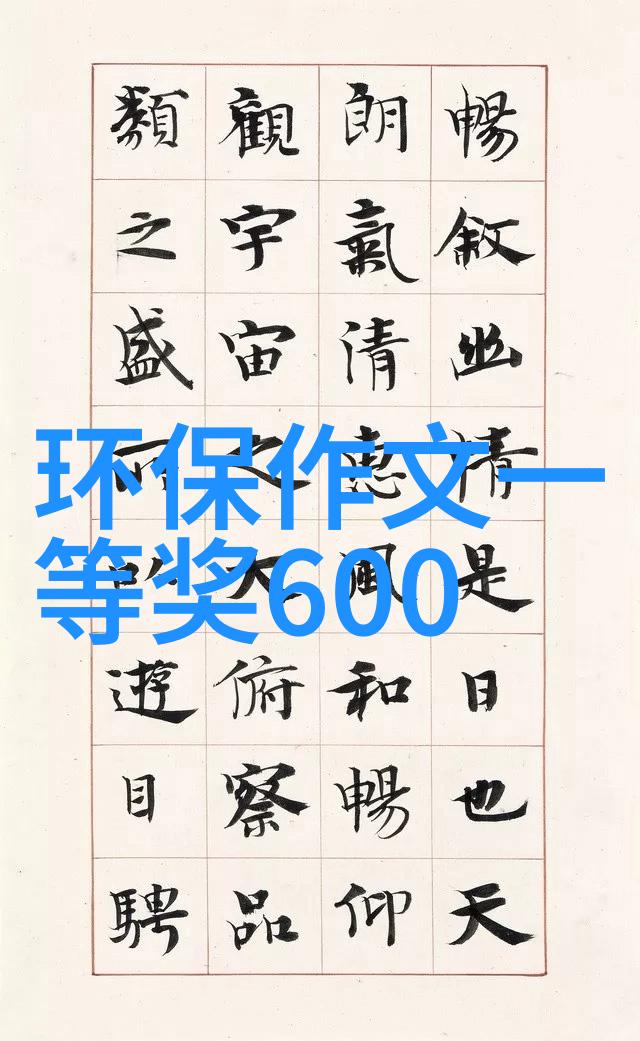 环保作文一
等奖600
暢敘幽情是日也天
朗氣清惠風和暢仰
觀宇宙之大俯察品
類之盛所以遊目騁